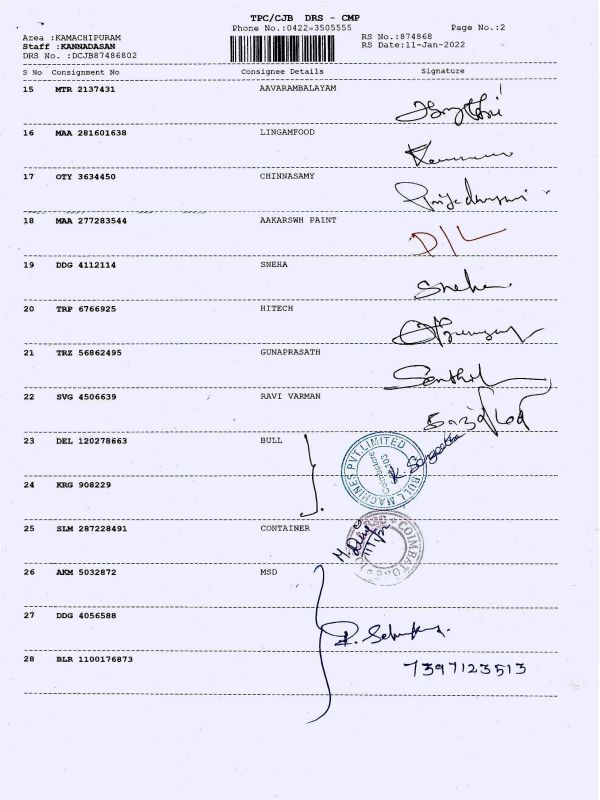 TPC/CJB DRS - CMP
Phone No.:0422-3505555 Page No.:2
Area :KAMACHIPURAM RS No.:874868
Staff :KANNADASAN RS Date:11-Jan-2022
DRS No. :DCJB87486802
S No Consignment No Consignee Details Signature
15 MTR 2137431 AAVARAMBALAYAM
16 MAA 281601638 LINGAMFOOD
17 OTY 3634450 CHINNASAMY
18 MAA 277283544 AAKARSWH PAINT D/L
19 DDG 4112114 SNEHA Sneha
20 TRP 6766925 HITECH
21 TRZ 56862495 GUNAPRASATH Senthil
22 SVG 4506639 RAVI VARMAN
23 DEL 120278663 BULL
BULL MACHINES PVT.LIMITED
24 KRG 908229
25 SLM 287228491 CONTAINER
26 AKM 5032872 MSD
27 DDG 4056588
28 BLR 1100176873 7397123513